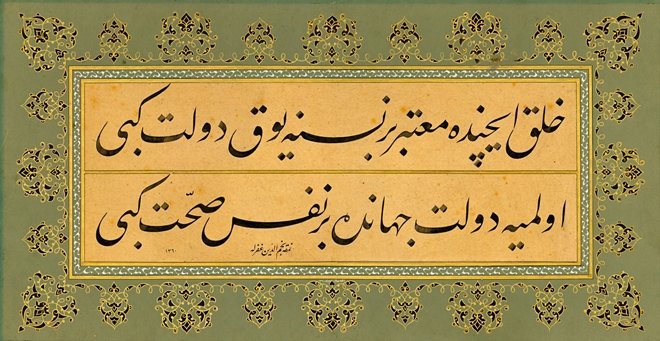 خلق ایچنده معتبر بر نسنه یوق دولت کبی
اولمیه دولت جهانده بر نفس صحّت کبی
نمقه نجم الدین غفرله
١٣٦٠